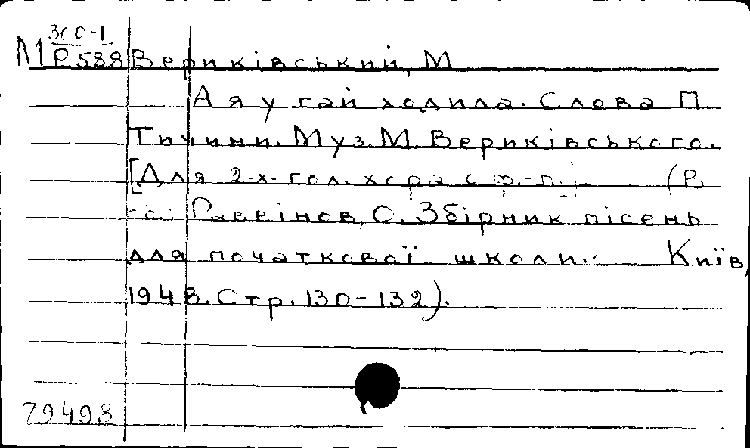 М 300-1
Р538 Вериківський, М
А я у гай ходила. Слова П
Тичини. Муз. М. Вериківського.
[Для 2-х-гол. хора с ф.-п.] (В
Раввінов, О. Збірник пісень
для початкової школи.. Київ,
1948. Стр. 130-132).
79498